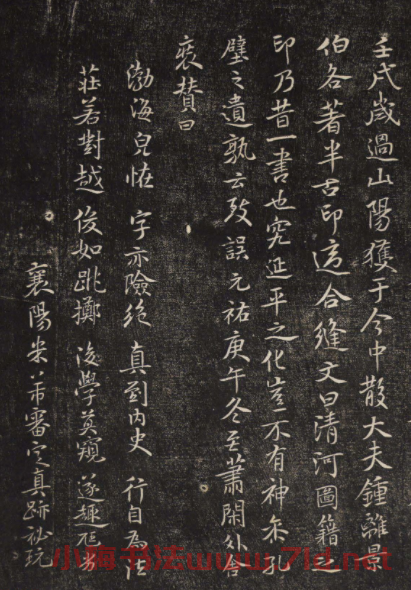 壬戌歲過山陽獲于今中散大夫鍾離景
伯各著半古印這合縫文曰清河圖籍之
印乃昔一書也究延平之化豈不有神魚孔
壁之遺孰云致誤元祐庚午冬至蕭閑外舍
襄贊曰
渤海兒怪 字亦險絕 真到內史 行自為法
莊若對越 俊如跳擲 後學莫窺 遂趣
襄陽米芾審定真跡祕玩
小晦书法www.71d.net